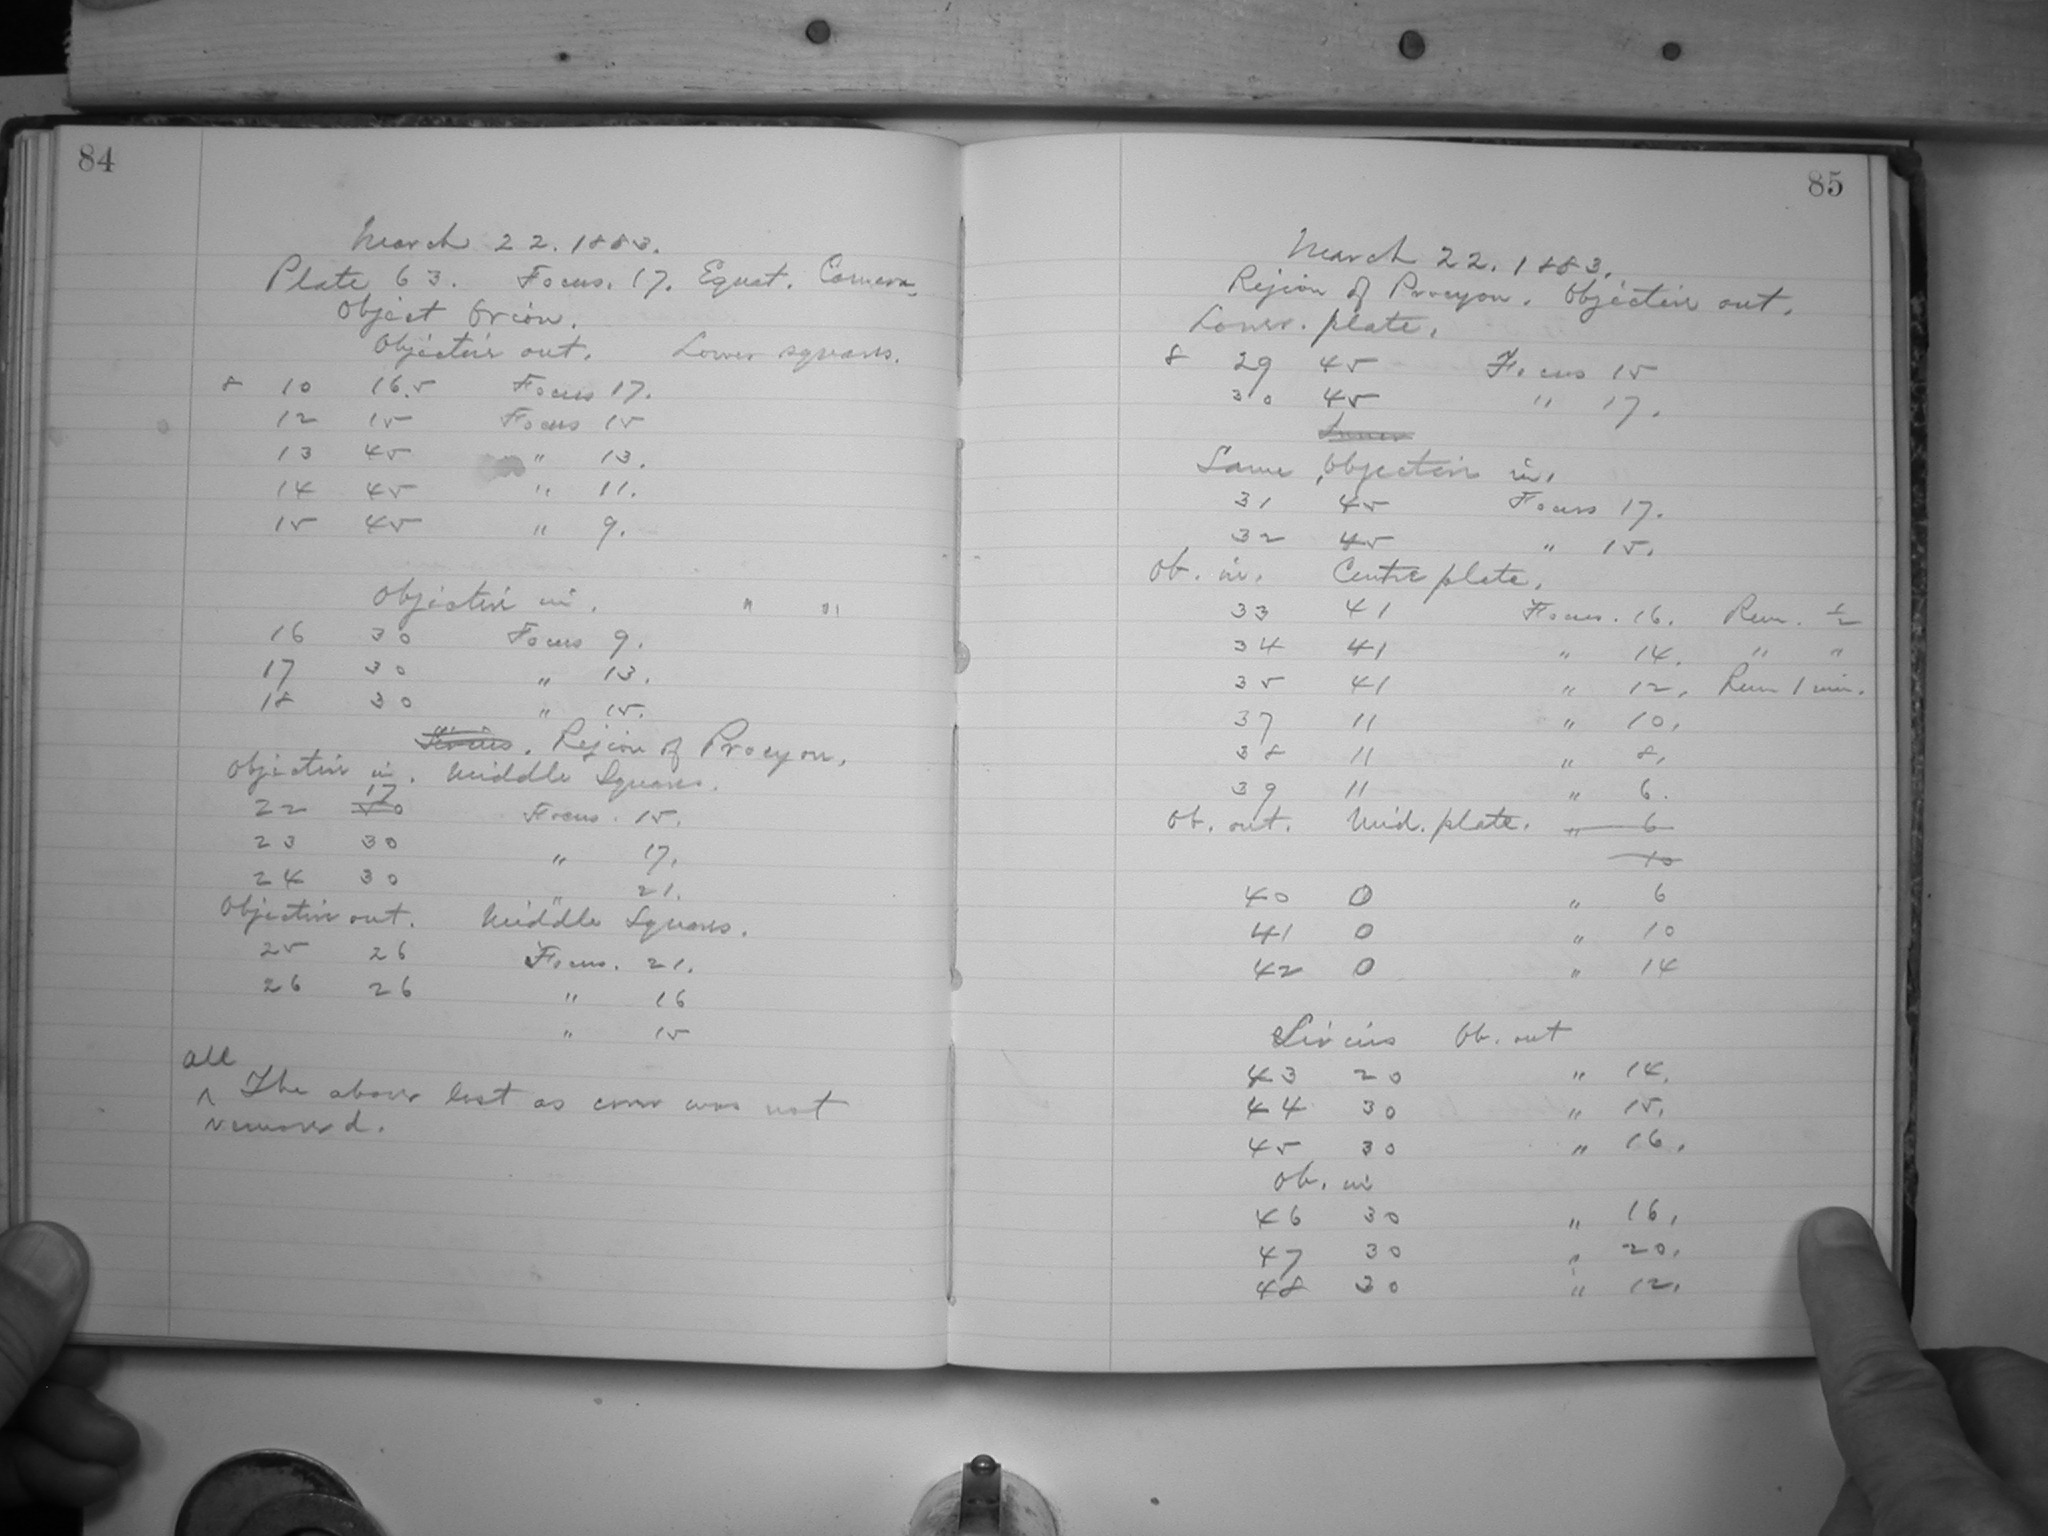 84
March 22. 1883.
Plate 63. Focus. 17. Equat. Camera.
Object Orion.
Objective out. Lower squares.
8 10 16.5 Focus 17.
12 15 Focus 15
13 45 " 13.
14 45 " 11.
15 45 " 9.
Objective in. " "
16 30 Focus 9.
17 30 " 13.
18 30 " 15.
Sirius. Rejion of Procyon.
Objective in. Middle Squares.
17
22 50 Focus. 15.
23 30 " 17.
24 30 " 21.
Objective out. Middle Squares.
25 26 Focus. 21.
26 26 " 16
" 15
all
^ The above lost as cover was not
removed.
85
March 22. 1883.
Rejion of Procyon. Objective out.
Lower. plate.
8 29 45 Focus 15
30 45 " 17.
Same, Objective in.
31 45 Focus 17.
32 45 " 15.
Ob. in. Centre plate.
33 41 Focus. 16. Rem. 1/2
34 41 " 14. " "
35 41 " 12. Rem 1 min.
37 11 " 10.
38 11 " 8.
39 11 " 6.
Ob. out. Mid. plate. " 6
10
40 0 " 6
41 0 " 10
42 0 " 14
Sirius Ob. out
43 20 " 14.
44 30 " 15.
45 30 " 16.
Ob. in
46 30 " 16.
47 30 " 20.
48 30 " 12.